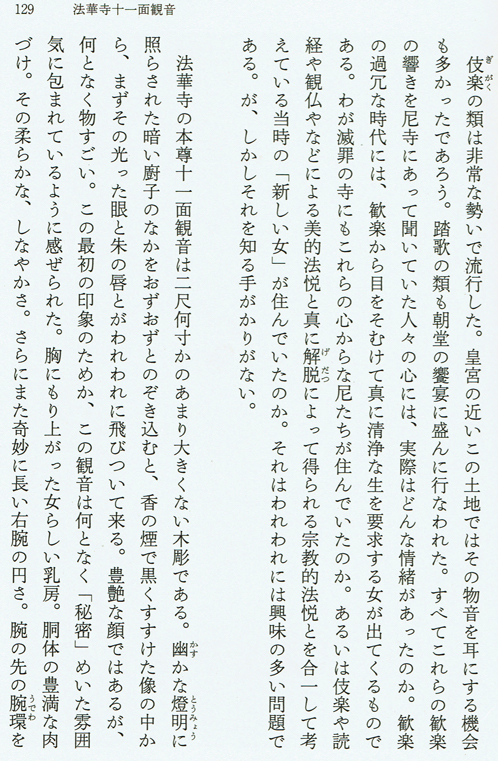 129　法華寺十一面観音
伎楽の類は非常な勢いで流行した。皇宮の近いこの土地ではその物音を耳にする機会
も多かったであろう。踏歌の類も朝堂の饗宴に盛んに行なわれた。すべてこれらの歓楽
の響きを尼寺にあって聞いていた人々の心には、実際はどんな情緒があったのか。歓楽
の過冗な時代には、歓楽から目をそむけて真に清浄な生を要求する女が出てくるもので
ある。わが滅罪の寺にもこれらの心からな尼たちが住んでいたのか。あるいは伎楽や読
経や観仏やなどによる美的法悦と真に解脱によって得られる宗教的法悦とを合一して考
えている当時の「新しい女」が住んでいたのか。それはわれわれには興味の多い問題で
ある。が、しかしそれを知る手がかりがない。
法華寺の本尊十一面観音は二尺何寸かのあまり大きくない木彫である。幽かな燈明に
照らされた暗い厨子のなかをおずおずとのぞき込むと、香の煙で黒くすすけた像の中か
ら、まずその光った眼と朱の唇とがわれわれに飛びついて来る。豊艶な顔ではあるが、
何となく物すごい。この最初の印象のためか、この観音は何となく「秘密」めいた雰囲
気に包まれているように感ぜられた。胸にもり上がった女らしい乳房。胴体の豊満な肉
づけ。その柔らかな、しなやかさ。さらにまた奇妙に長い右腕の円さ。腕の先の腕環を